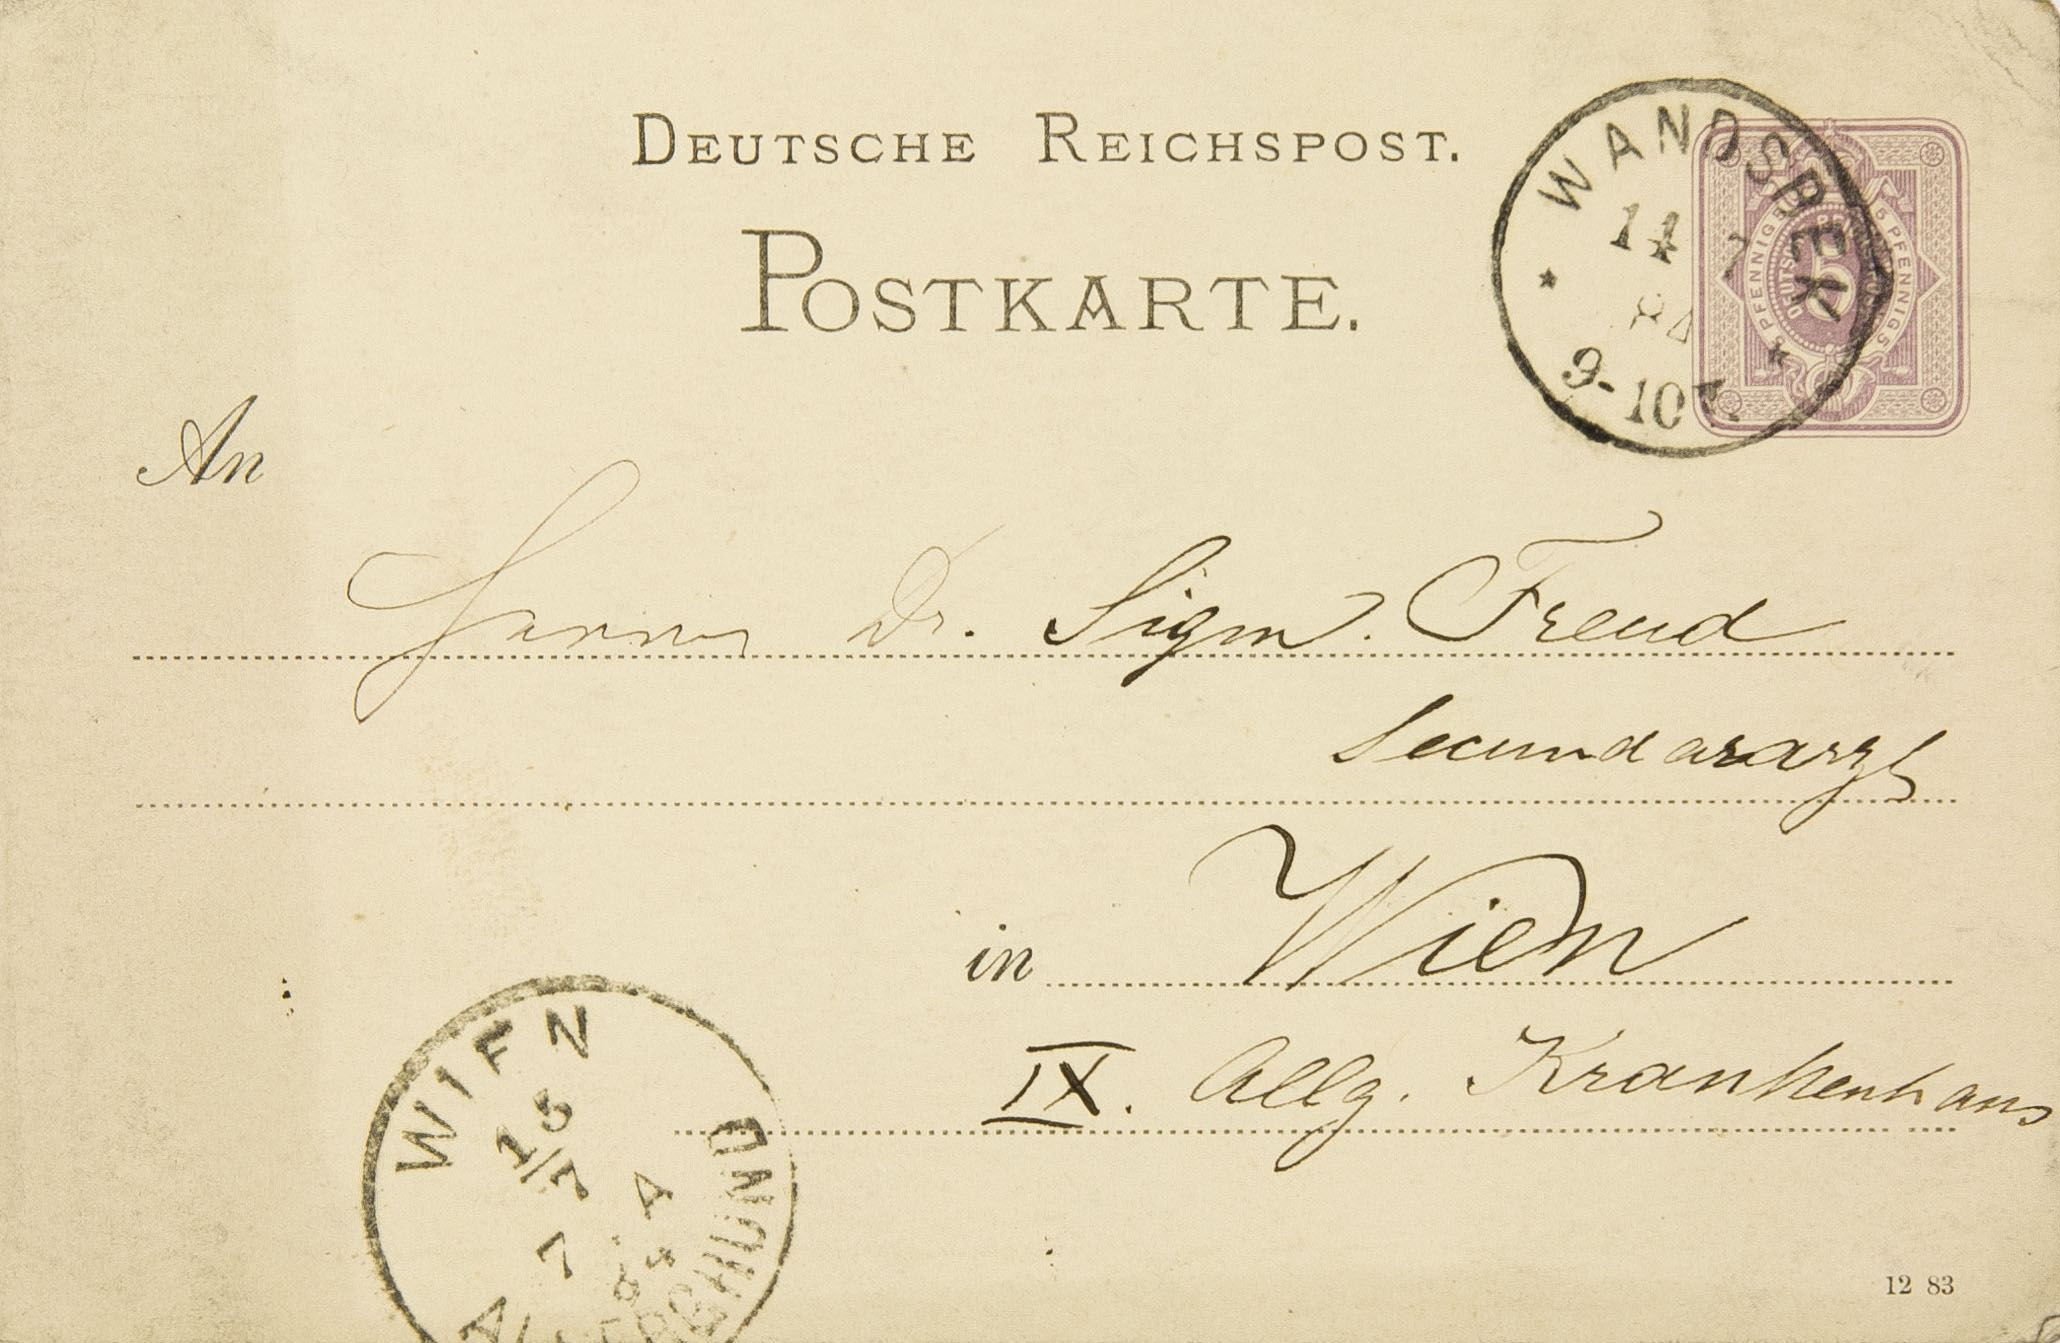 DEUTSCHE REICHSPOST.
POSTKARTE.
WANDSBEK
14 7
84
9-10
5 PFENNIG 5 PFENNIG 5 PFENNIG 5
An
Herrn Dr. Sigm. Freud
Secundararzt
in Wien
IX. Allg. Krankenhaus
WIEN
15/7
7 A
84
ALSERGRUND
12 83